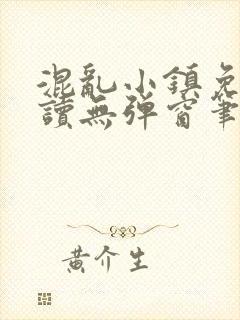 混亂小鎮免
讀無彈窗筆
黃介生